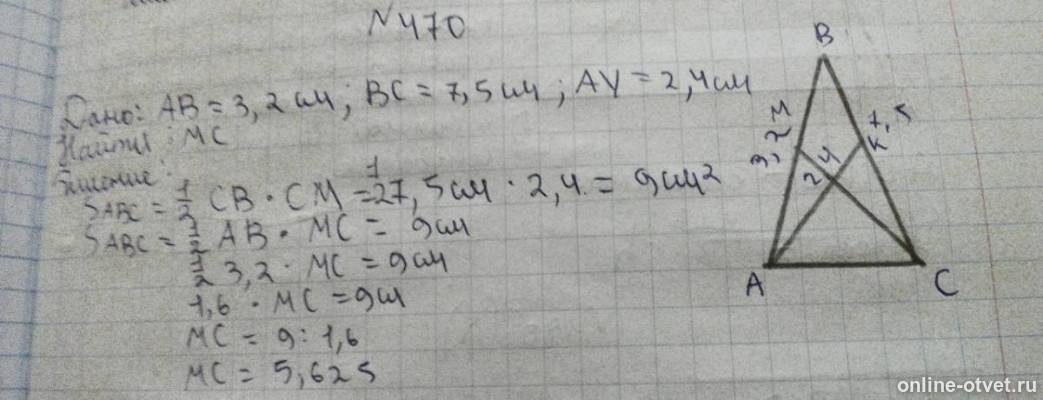 №470
Дано: AB = 3,2 см; BC = 7,5 см; AY = 2,4 см
Найти: MC
Решение:
SABC = 1/2 CB · CM = 1/2 7,5 см · 2,4 = 9 см²
SABC = 1/2 AB · MC = 9 см
1/2 3,2 · MC = 9 см
1,6 · MC = 9 см
MC = 9 : 1,6
MC = 5,625
B
M
3,2
7,5
K
2,4
A
C
online-otvet.ru